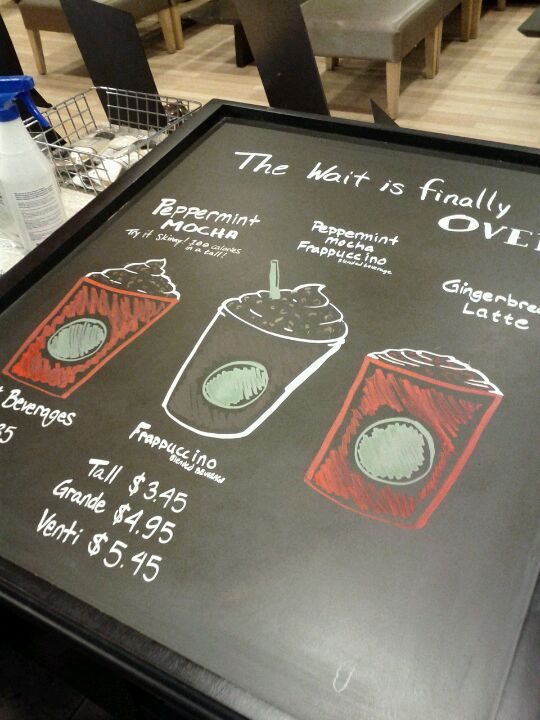 The Wait is finally
Peppermint
MOCHA
Try it Skinny! 200 calories
in a tall!
Peppermint
mocha
Frappuccino
blended beverage
Latte
Beverages
Frappuccino
Blended Beverage
Tall $3.45
Grande $4.95
Venti $5.45